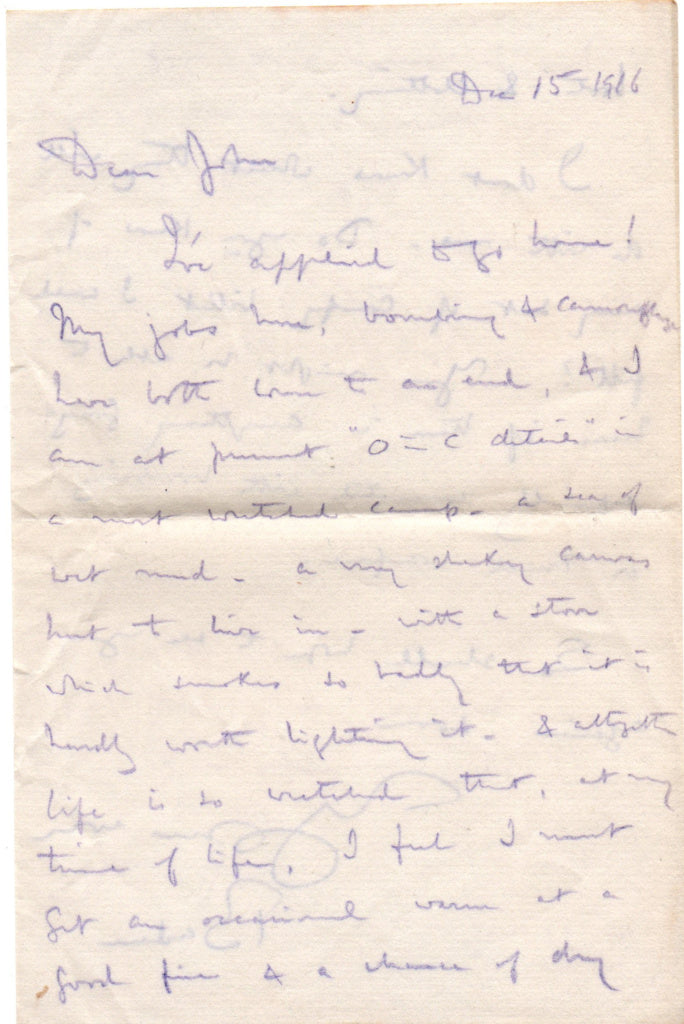 Dec 15 1916
Dear John
I've applied to go home!
My jobs here, bombing & camouflage
have both come to an end, & I
am at present "O = C details" in
a most wretched camp - a sea of
wet mud - a very shaky canvas
hut to live in - with a stove
which smokes so badly that it is
hardly worth lighting it - & altogether
life is so wretched that, at my
time of life, I feel I must
get an occasional warm at a
good fire & a chance of dry